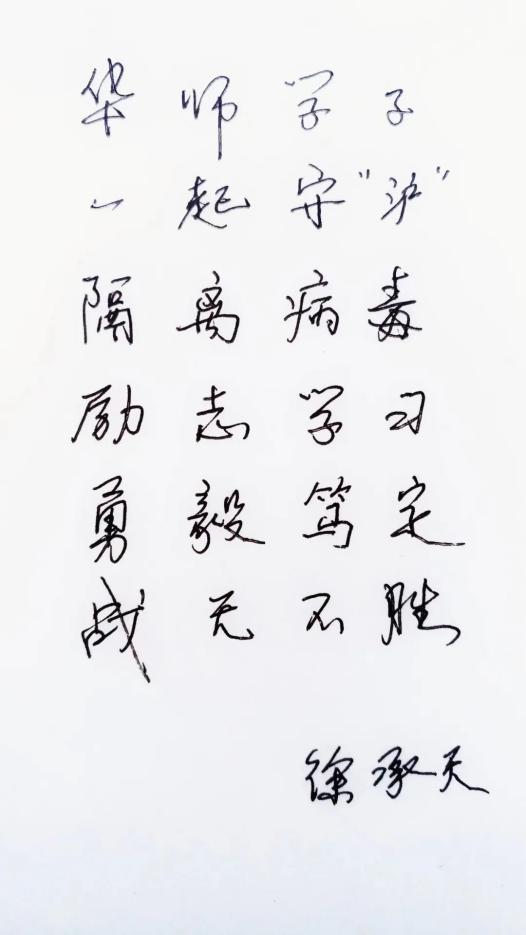 华师学子
一起守“沪”
隔离病毒
励志学习
勇毅笃定
战无不胜
徐承天